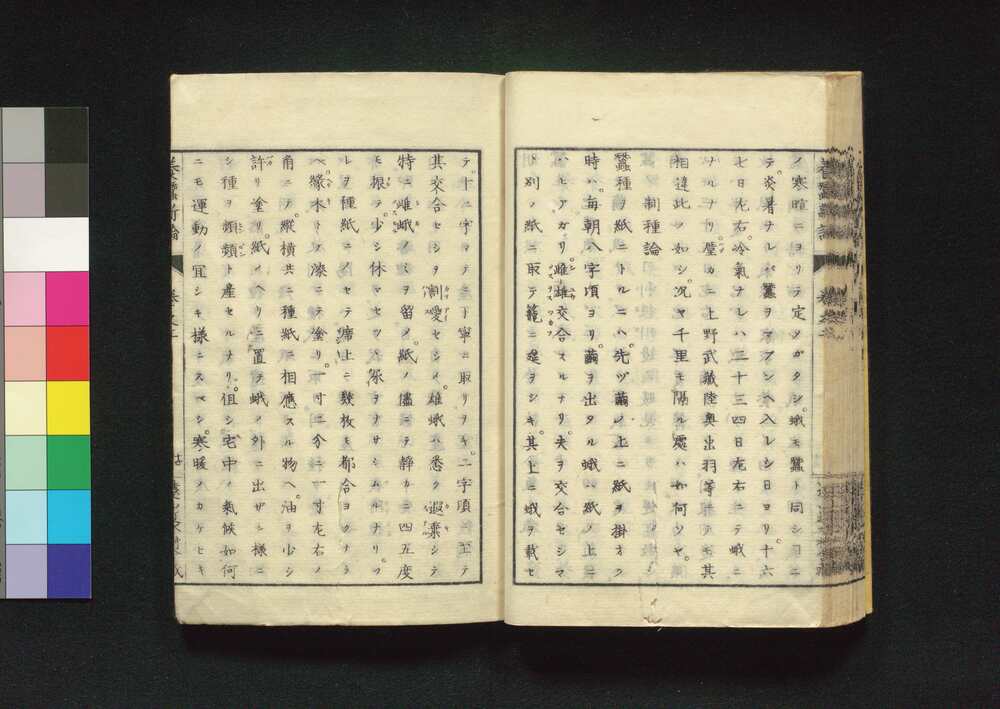 ノ寒暄ニヨリテ定メガタシ。蛾モ蠶ト同シヨニ
テ炎暑ナレバ蠶ヲマブシヘ入レシ日ヨリ十六
七日左右。冷氣ナレハ二十三四日左右ニテ蛾ニ
ナルナリ。僅カニ上野武藏陸奥出羽等ニテモ其
相違此ノ如シ。况ヤ千里モ隔ル處ハ如何ソヤ。
制種論
蠶種ヲ紙ニトルニハ。先ヅ繭ノ上ニ紙ヲ掛オク
時ハ。毎朝八字頃ヨリ繭ヲ出タル蛾ハ紙ノ上ニ
ハヒアガリ。雌雄交合スルナリ。夫ヲ交合セシマ
別ノ紙ニ取テ籠ニ莚ヲシキ。其上ニ蛾ヲ載セ
テ十二字マテ丁寧ニ取リヲキ。二字頃ニ至テ
其交合セシヲ割愛セシメ。雄蛾ハ悉ク遐棄シテ
特ニ雌蛾ノミヲ留メ。紙ノ儘ニテ靜カニ四五度
モ振テ。少シ休マセツヽ尿ヲナサシムルナリ。
レヲ種紙ニノセテ。席上ニ幾枚モ都合ヨクナラ
ベ。椽木トメ漆ニテ塗リ。一寸二分ニ一寸左右ノ
角ニテ。縱横共ニ種紙ニ相應スル物ヘ。油ヲ少シ
許リ塗リ。紙ノヘリニ置テ蛾ノ外ニ出ザシ樣ニ
シ種ヲ煩類ト産セルナリ。但シ宅中ノ氣候如何
ニモ運動ノ宜シキ樣ニスベシ。寒暖ノカケヒキ
養蠶新論